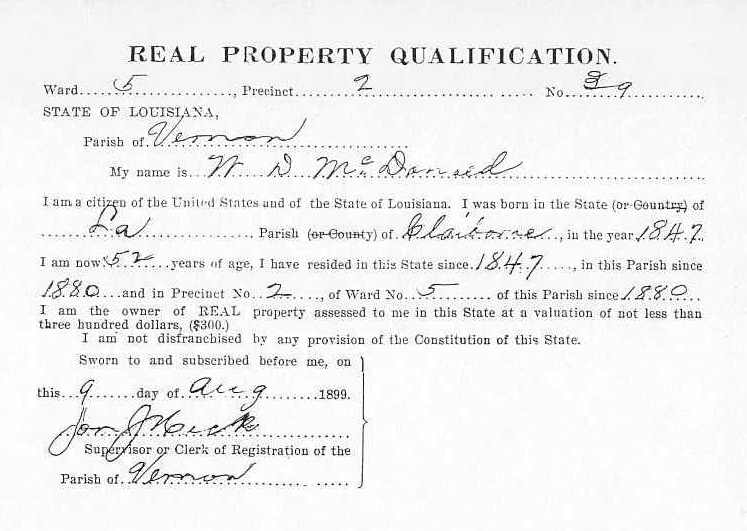 REAL PROPERTY QUALIFICATION.
Ward.....5............., Precinct..........2........................ No...39............
STATE OF LOUISIANA,
Parish of Vernon
My name is W D McDonald
I am a citizen of the United States and of the State of Louisiana. I was born in the State (or Country) of
La, Parish (or County) of Claiborne, in the year 1847.
I am now 52 years of age, I have resided in this State since 1847, in this Parish since
1880 and in Precinct No. 2, of Ward No. 5 of this Parish since 1880
I am the owner of REAL property assessed to me in this State at a valuation of not less than
three hundred dollars, ($300.)
I am not disfranchised by any provision of the Constitution of this State.
Sworn to and subscribed before me, on
this 9 day of Aug 1899.
Supervisor or Clerk of Registration of the
Parish of Vernon